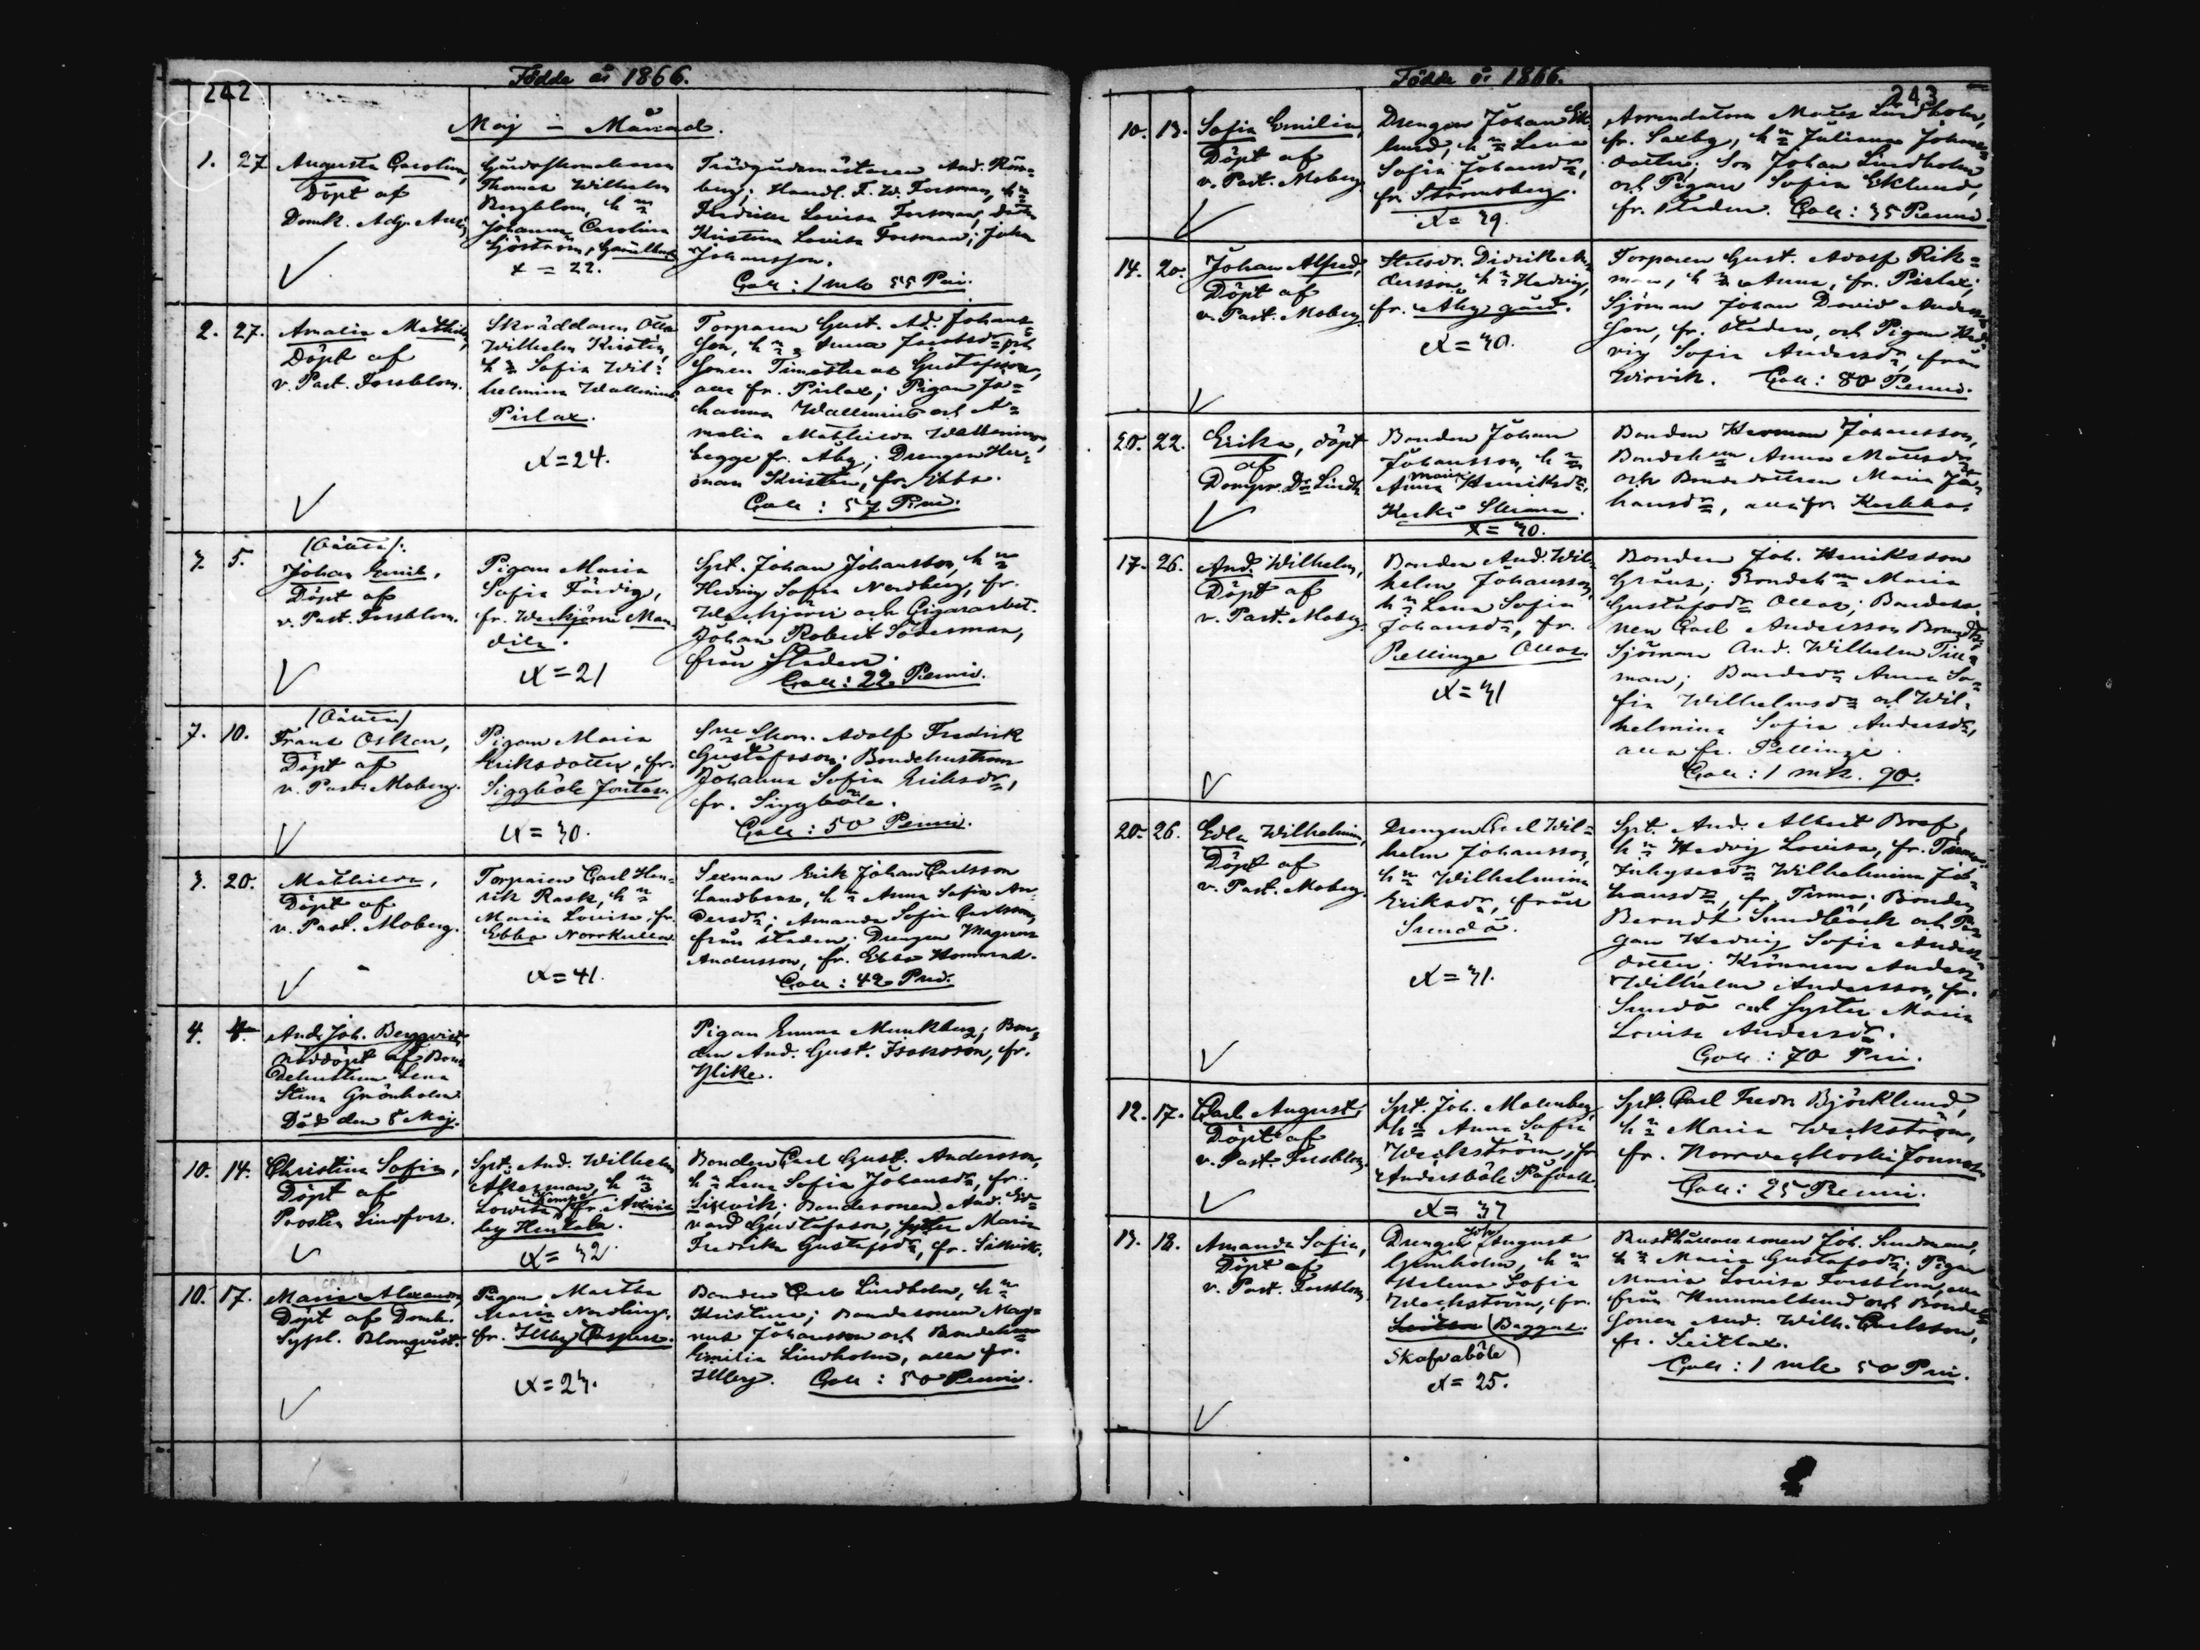 242
Födde år 1866.
Maj - Månad.
1. 27 Augusta Carolina,
Döpt af
Domk. Adj.
Thomas Wilhelm
Bergblom, hn
Johanna Carolina
x = 22.
Trädgårdsmästaren And.
Handl. F. W. Forsman, hn
Fredrika Lovisa Forsman,
Kristina Lovisa Forsman; John
Johansson.
Coll: 1 mk 55 Pni.
2. 27. Amalia Mathilda,
Döpt af
v. Past. Forsblom.
Skräddaren Otto
Wilhelm Kristen,
hn Sofia Wil-
helmina Wallenius
Pirlax.
x = 24.
Torparen Gust. Ad. Johans-
son, hn Anna
Sonen Gustafsson,
alla fr. Pirlax; Pigan Jo-
hanna Wallenius och A-
malia Mathilda Wallenius,
begge fr. Åby; Drengen Her-
man Kristen, fr. Ebbo.
Coll: 57 Pni.
3. 5. (Oäkta):
Johan Emil,
Döpt af
v. Past. Forsblom.
Pigan Maria
Sofia Färdig,
fr. Weckjärvi Man-
dila.
x = 21
Spt. Johan Johansson, hn
Hedvig Sofia Nordberg, fr.
Weckjärvi och Cigararbet.
Johan Robert Söderman,
från Staden.
Coll: 22 Penni.
7. 10. (Oäkta)
Frans Oskar,
Döpt af
v. Past. Moberg.
Pigan Maria
Eriksdotter, fr.
Siggböle Jontas.
x = 30.
Adolf Fredrik
Gustafsson; Bondehustrun
Johanna Sofia Eriksdr,
fr. Siggböle.
Coll: 50 Penni.
3. 20. Mathilda,
Döpt af
v. Past. Moberg.
Torparen Carl Hen-
rik Rask, hn
Maria Lovisa, fr.
Ebbo Norrkulla.
x = 41.
Sexman Erik Johan Carlsson
Landbonn, hn Anna Sofia An-
dersdr; Amanda Sofia Carlsson,
från Staden; Drengen Magnus
Andersson, fr. Ebbo
Coll: 42 Pni.
4. 4. And. Joh. Bergqvist
nöddöpt af Bon-
dehustrun Lena
Stina Grönholm.
Död den 8 Maj.
Pigan Emma Munkberg; Bon-
den And. Gust. Isaksson, fr.
Ylike.
10. 14. Christina Sofia,
Döpt af
Prosten Lindfors.
Spt. And. Wilhelm
Åkerman, hn
Lovisa
by Henkala.
x = 32.
Bonden Carl Gust. Andersson,
hn Lena Sofia Johansdr, fr.
Sikvik; Bondesonen And. Ed-
vard Gustafsson, Syster Maria
Fredrika Gustafsdr, fr. Sikvik.
10. 17. Maria Alexandra,
Döpt af Domk.
Sypl. Blomqvist.
Pigan Martha
Maria Nordling,
fr. Illby Caspers.
x = 23.
Bonden Carl Lindholm, hn
Kristina; Bondesonen Mag-
nus Johansson och Bondehn
Emilia Lindholm, alla fr.
Illby. Coll: 50 Penni.
243
Födde år 1866.
10. 13. Sofia Emilia,
Döpt af
v. Past. Moberg.
Drengen Johan Ek-
lund, hn Lena
Sofia Johansdr,
fr. Strömsberg.
x = 39.
Arrendatorn Mats Lindholm,
fr. Saxby, hn Juliana Johans-
dotter; Son Johan Lindholm
och Pigan Sofia Eklund,
fr. Staden. Coll: 35 Penni.
14. 20. Johan Alfred,
Döpt af
v. Past. Moberg.
Didrik An-
dersson, hn Hedvig,
fr. Åby gård.
x = 30.
Torparen Gust. Adolf Rik-
man, hn Anna, fr. Pirlax;
Sjöman Johan David Anders-
son, fr. Staden, och Pigan Hed-
vig Sofia Andersdr, från
Wirvik. Coll: 80 Penni.
20. 22. Erika, döpt
af
Dompr. Dr Lindh
Bonden Johan
Johansson, hn
Anna Maria Henriksdr,
Kerko
x = 30.
Bonden Herman Johansson,
Bondehn Anna Matsdr
och Bondedottren Maria Jo-
hansdr, alla fr. Kerkko.
17. 26. And. Wilhelm,
Döpt af
v. Past. Moberg.
Bonden And. Wil-
helm Johansson,
hn Lena Sofia
Johansdr, fr.
Pellinge Ollas.
x = 31
Bonden Joh. Henriksson
Gräns; Bondehn Maria
Gustafsdr Ollas; Bondeso-
nen Carl Andersson
Sjöman And. Wilhelm Till-
man; Bondedr Anna So-
fia Wilhelmsdr och Wil-
helmina Sofia Andersdr,
alla fr. Pellinge.
Coll: 1 mk. 90.
20. 26. Edla Wilhelmina,
Döpt af
v. Past. Moberg.
Drengen Carl Wil-
helm Johansson,
hn Wilhelmina
Eriksdr, från
Sundö.
x = 31.
Spt. And. Albert Bref,
hn Hedvig Lovisa, fr. Tirmo;
Wilhelmina Jo-
hansdr, fr. Tirmo; Bonden
Berndt Sundbäck och Pi-
gan Hedvig Sofia Anders-
dotter; Anders
Wilhelm Andersson, fr.
Sundö och Syster Maria
Lovisa Andersdr.
Coll: 70 Pni.
12. 17. Carl August,
Döpt af
v. Past. Forsblom.
Spt. Joh. Malmberg,
hn Anna Sofia
Weckström, fr.
Andersböle
x = 37
Spt. Carl Fredr. Björklund,
hn Maria Weckström,
fr. Norrveckoski Jonnas.
Coll: 25 Penni.
13. 18. Amanda Sofia,
Döpt af
v. Past. Forsblom.
Drengen August
Grönholm, hn
Helena Sofia
Weckström, fr.
Baggas.
Skafvaböle)
x = 25.
Rusthållaresonen Joh. Sundman,
hn Maria Gustafsdr; Pigan
Maria Lovisa Forsblom, alla
från Hummelsund och Bonde-
sonen And. Wilh. Carlsson,
fr. Seitlax.
Coll: 1 mk 50 Pni.